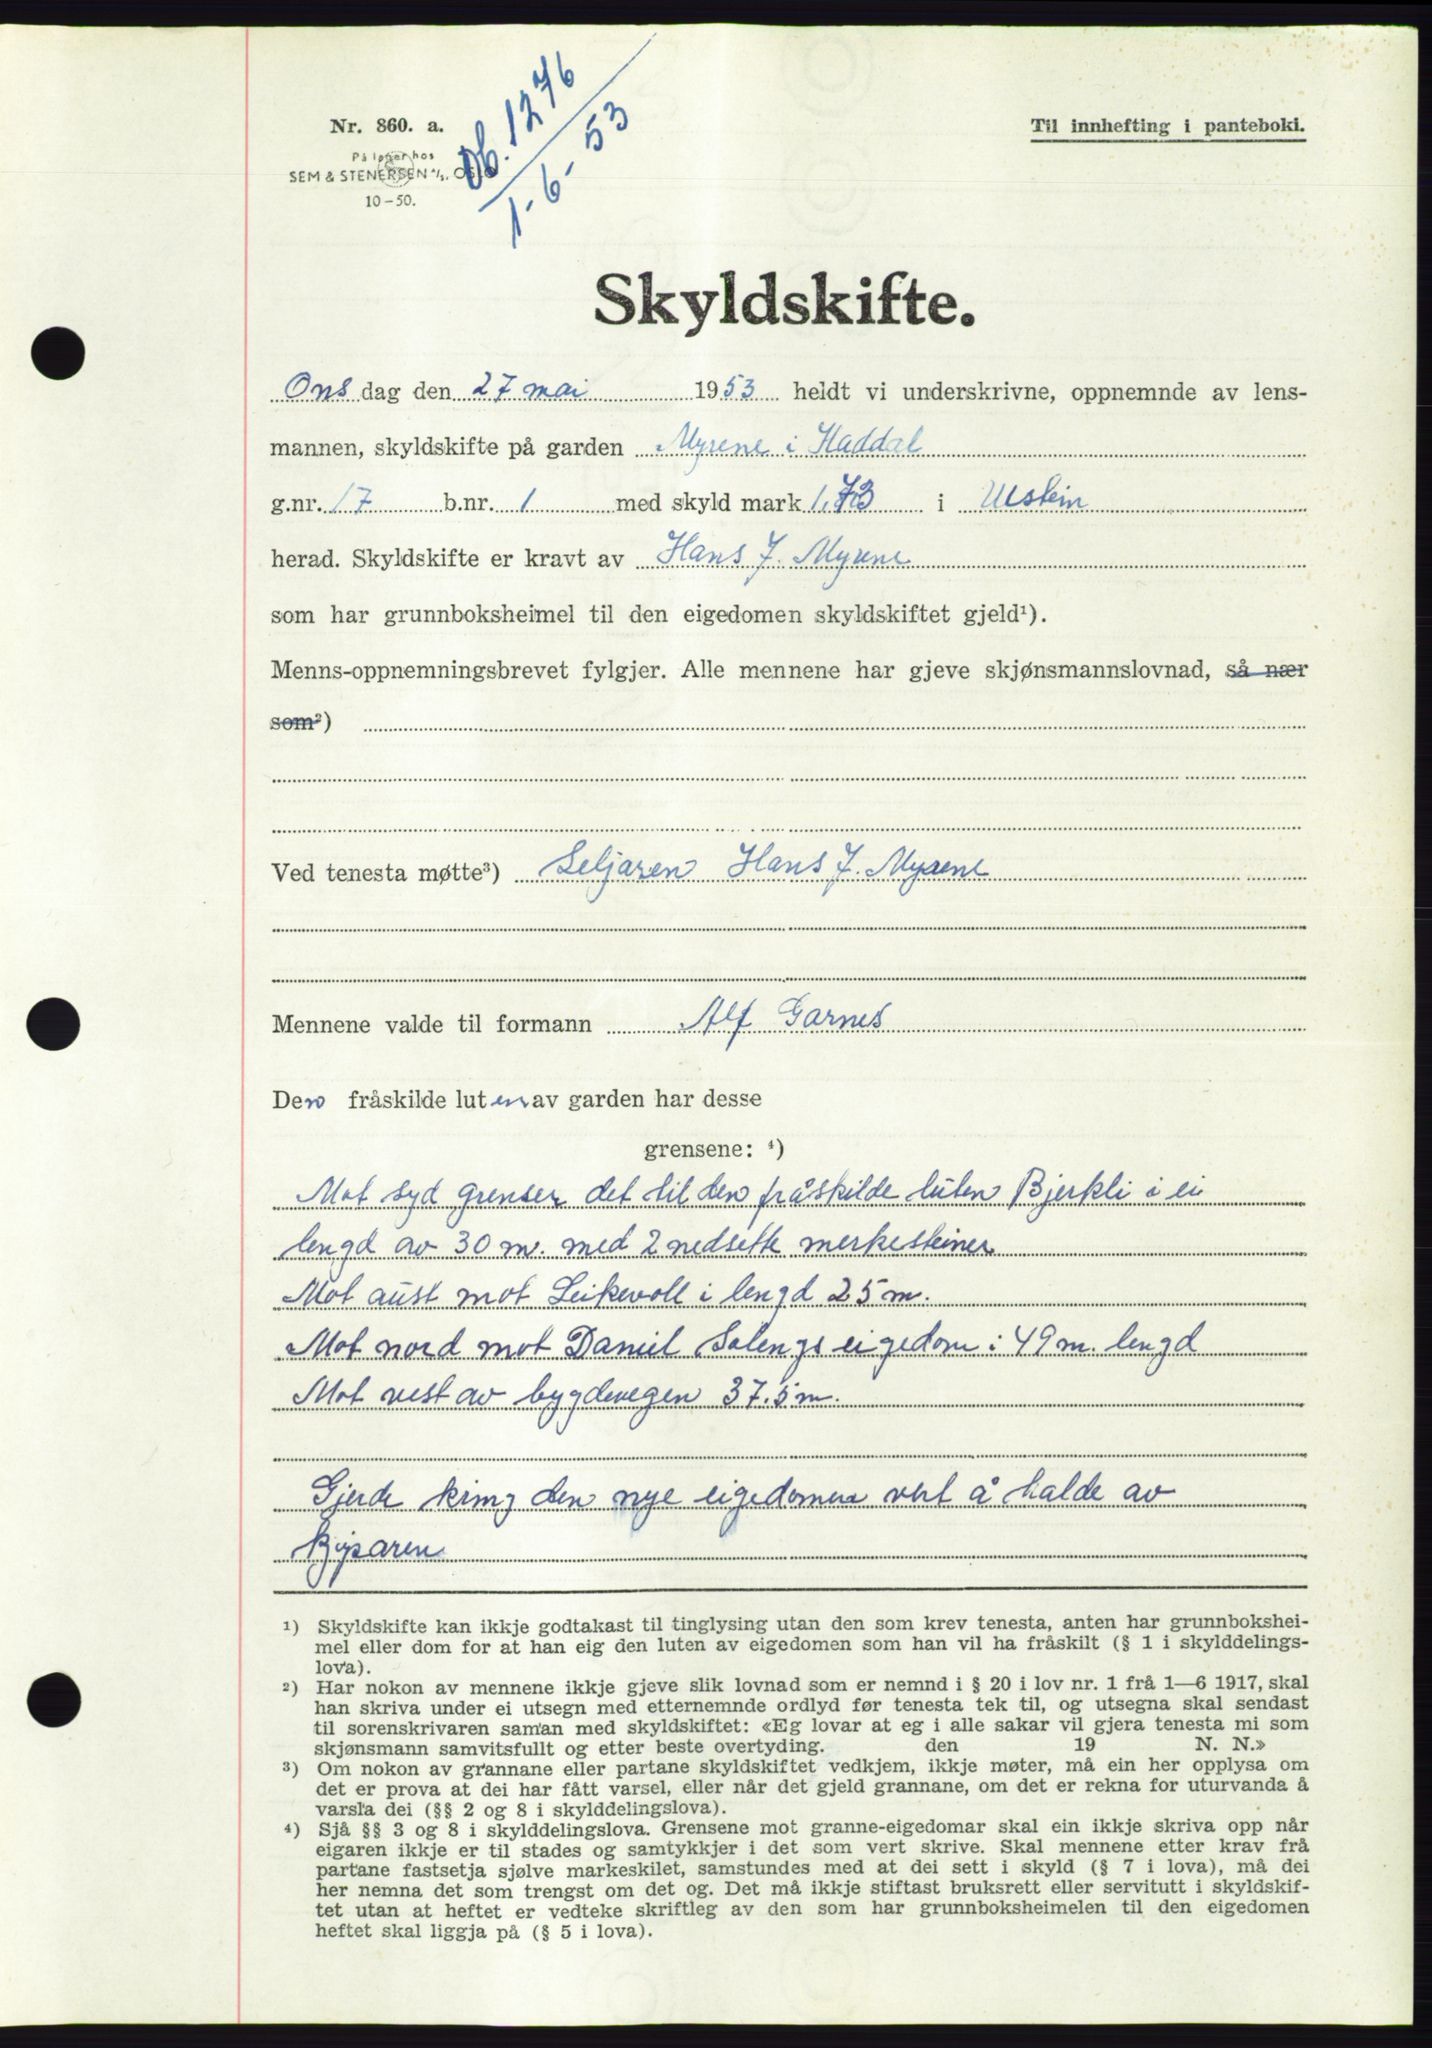 Nr. 860. a.
På lager hos
SEM & STENERSEN A/S, OSLO
10-50.
Db. 1276
1-6-53
Til innhefting i panteboki.
Skyldskifte.
Onsdag den 27 mai 1953 heldt vi underskrivne, oppnemnde av lens-
mannen, skyldskifte på garden Myrene i Haddal
g.nr. 17 b.nr. 1 med skyld mark 1,73 i Ulstein
herad. Skyldskifte er kravt av Hans J. Myrene
som har grunnboksheimel til den eigedomen skyldskiftet gjeld¹).
Menns-oppnemningsbrevet fylgjer. Alle mennene har gjeve skjønsmannslovnad, så nær
som²)
Ved tenesta møtte³) Seljaren Hans J. Myrene
Mennene valde til formann Alf Garnes
Den fråskilde luten av garden har desse
grensene: ⁴)
Mot syd grenser det til den fråskilde luten Bjerkli i ei
lengd av 30 m. med 2 nedsette merkesteiner
Mot aust mot Leikevoll i lengd 25 m.
Mot nord mot Daniel Solengs eigedom i 49 m. lengd
Mot vest av bygdevegen 37.5 m.
Gjerde kring den nye eigedomen vert å halde av
kjøparen
¹) Skyldskifte kan ikkje godtakast til tinglysing utan den som krev tenesta, anten har grunnbokshei-
mel eller dom for at han eig den luten av eigedomen som han vil ha fråskilt (§ 1 i skylddelings-
lova).
²) Har nokon av mennene ikkje gjeve slik lovnad som er nemnd i § 20 i lov nr. 1 frå 1—6 1917, skal
han skriva under ei utsegn med etternemnde ordlyd før tenesta tek til, og utsegna skal sendast
til sorenskrivaren saman med skyldskiftet: «Eg lovar at eg i alle sakar vil gjera tenesta mi som
skjønsmann samvitsfullt og etter beste overtyding. den 19 N. N.»
³) Om nokon av grannane eller partane skyldskiftet vedkjem, ikkje møter, må ein her opplysa om
det er prova at dei har fått varsel, eller når det gjeld grannane, om det er rekna for uturvanda å
varsla dei (§§ 2 og 8 i skylddelingslova).
⁴) Sjå §§ 3 og 8 i skylddelingslova. Grensene mot granne-eigedomar skal ein ikkje skriva opp når
eigaren ikkje er til stades og samtykkjer i det som vert skrive. Skal mennene etter krav frå
partane fastsetja sjølve markeskilet, samstundes med at dei sett i skyld (§ 7 i lova), må dei
her nemna det som trengst om det og. Det må ikkje stiftast bruksrett eller servitutt i skyldskif-
tet utan at heftet er vedteke skriftleg av den som har grunnboksheimelen til den eigedomen
heftet skal liggja på (§ 5 i lova).